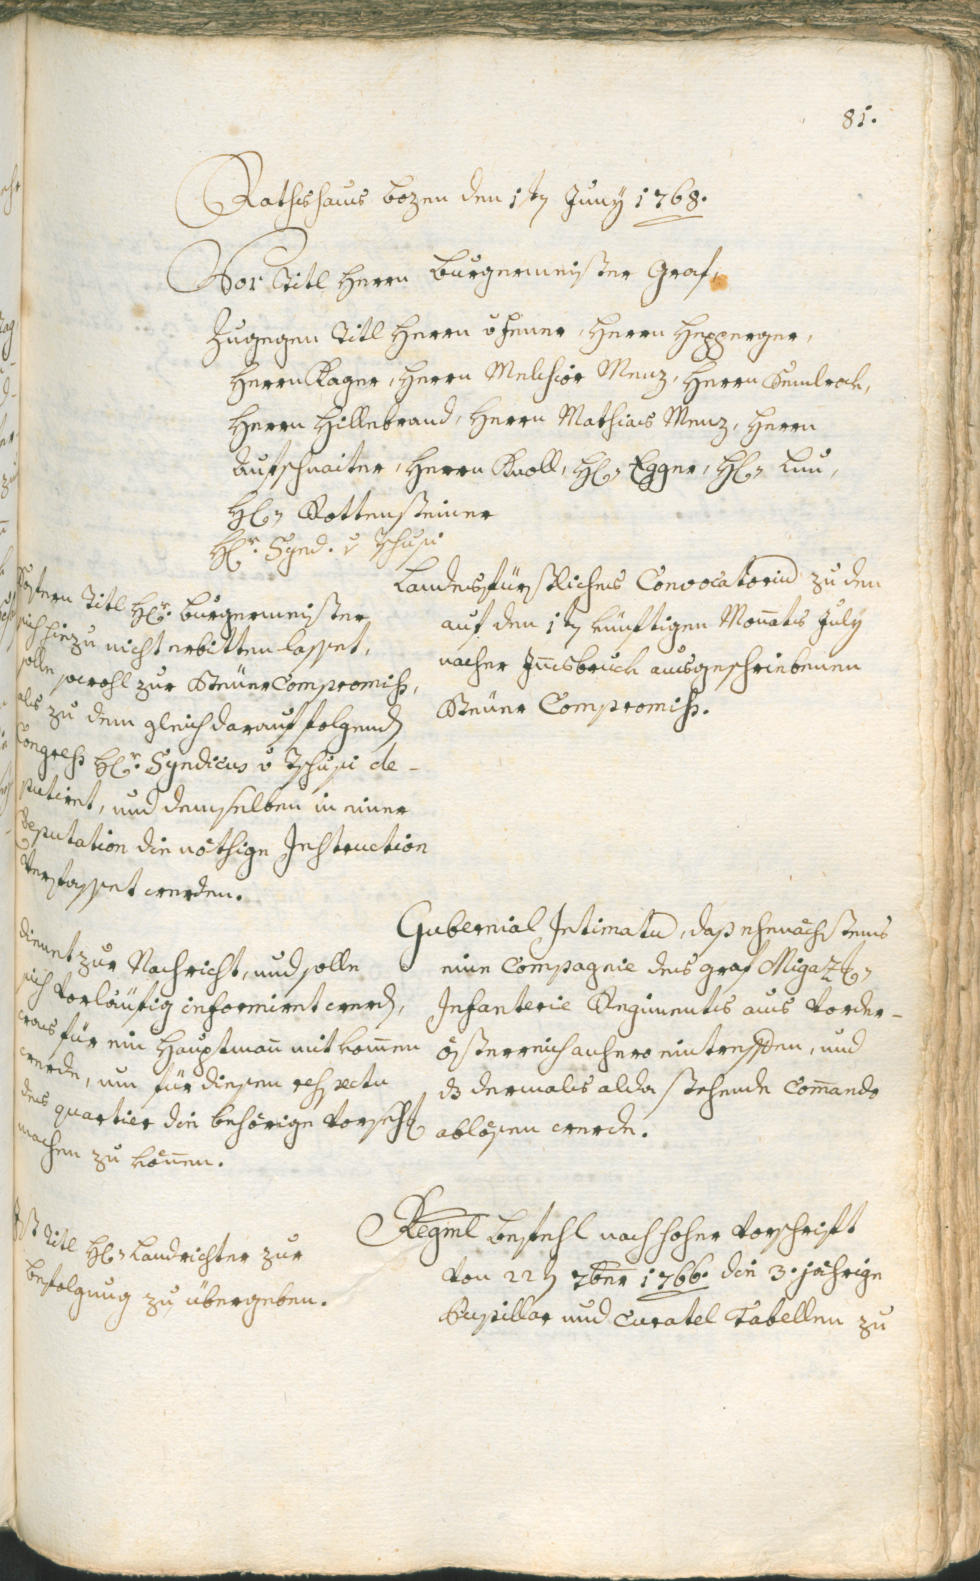 81.
Rathshaus Bozen den 1tn Juny 1768.
Vor Titl Herrn Burgermeister Graf,
Zugegen Titl Herrn v Jenner, Herrn Hepperger,
Herrn Kager, Herrn Melchior Menz, Herrn
Herrn Hillebrand, Herrn Mathias Menz, Herrn
Aufschnaiter, Herrn Knoll, H: Egger, H:
H: Rottensteiner
Hr. Synd. v Tschusi
Landesfürstliches Convocatoriu zu den
auf den 1tn künftigen Monnatis July
nacher Jnnsbruck ausgeschriebenen
Steüer Compromiß.
Titl Hr. Burgermeister
sich hiezu nicht erbitten lasset,
solle sowohl zur Steüer Compromiß,
als zu dem gleich darauf folgend
Congreß Hr. Syndicus v Tschusi de-
putiret, und demselben in einer
Deputation die nöthige Instruction
verfasset werden.
Gubernial Intimatu, daß ehenächstens
eine Compagnie des graf Migazi:
Infanterie Regiments aus Vorder-
österreich anhero eintreffen, und
dz dermalis alda stehende Commando
ablösen werde.
dienet zur Nachricht, und solle
sich vorläufig informiret werd,
was für ein Hauptman mit kommen
werde, um für diesen respectu
des quartier die behörige Vorseht
machen zu können.
Regml Befehl nach hoher Vorschrift
von 22tn 7ber 1766. die 3. jährige
Pupillar und Curatel Tabellen zu
Ist Titl H: Landrichter zur
befolgung zu übergeben.